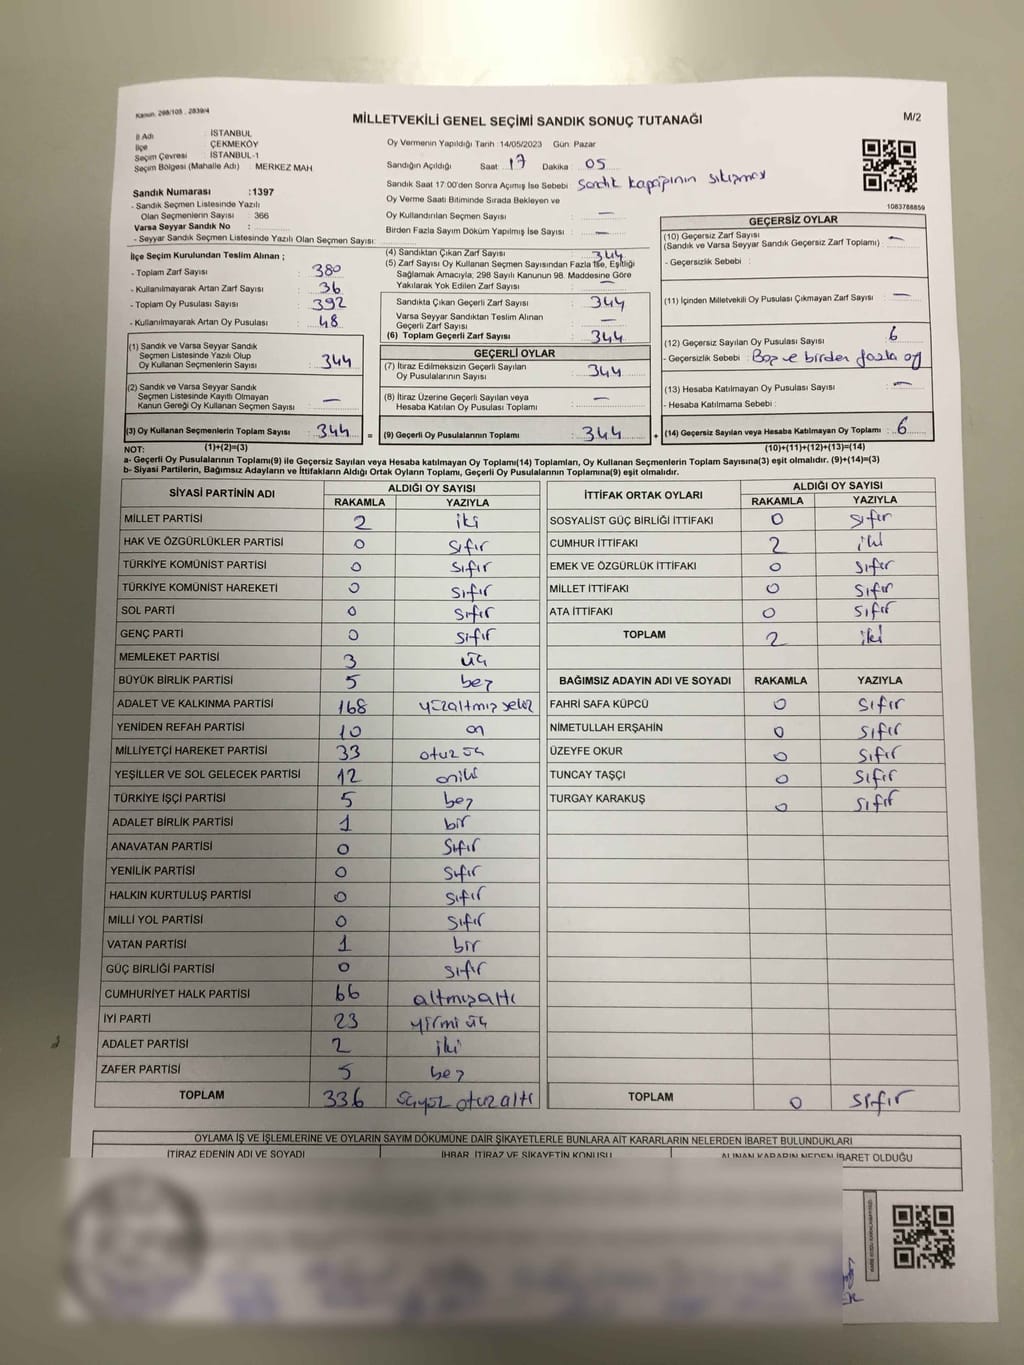 Kanun, 298/105 . 2839/4
MİLLETVEKİLİ GENEL SEÇİMİ SANDIK SONUÇ TUTANAĞI
M/2
İl Adı : İSTANBUL
İlçe : ÇEKMEKÖY
Seçim Çevresi : İSTANBUL-1
Seçim Bölgesi (Mahalle Adı) : MERKEZ MAH
Sandık Numarası :1397
- Sandık Seçmen Listesinde Yazılı
Olan Seçmenlerin Sayısı : 366
Varsa Seyyar Sandık No :
- Seyyar Sandık Seçmen Listesinde Yazılı Olan Seçmen Sayısı:
Oy Vermenin Yapıldığı Tarih :14/05/2023 Gün: Pazar
Sandığın Açıldığı Saat: 17 Dakika : 05
Sandık Saat 17:00'den Sonra Açımış İse Sebebi : Sandık kapağının sıkışması
Oy Verme Saati Bitiminde Sırada Bekleyen ve
Oy Kullandırılan Seçmen Sayısı : —
Birden Fazla Sayım Döküm Yapılmış İse Sayısı : —
1083788859
İlçe Seçim Kurulundan Teslim Alınan ;
- Toplam Zarf Sayısı : 380
- Kullanılmayarak Artan Zarf Sayısı : 36
- Toplam Oy Pusulası Sayısı : 392
- Kullanılmayarak Artan Oy Pusulası : 48
(1) Sandık ve Varsa Seyyar Sandık
Seçmen Listesinde Yazılı Olup
Oy Kullanan Seçmenlerin Sayısı : 344
(2) Sandık ve Varsa Seyyar Sandık
Seçmen Listesinde Kayıtlı Olmayan
Kanun Gereği Oy Kullanan Seçmen Sayısı : —
(3) Oy Kullanan Seçmenlerin Toplam Sayısı : 344
(4) Sandıktan Çıkan Zarf Sayısı : 344
(5) Zarf Sayısı Oy Kullanan Seçmen Sayısından Fazla İse, Eşitliği
Sağlamak Amacıyla; 298 Sayılı Kanunun 98. Maddesine Göre
Yakılarak Yok Edilen Zarf Sayısı : —
Sandıkta Çıkan Geçerli Zarf Sayısı : 344
Varsa Seyyar Sandıktan Teslim Alınan
Geçerli Zarf Sayısı : —
(6) Toplam Geçerli Zarf Sayısı : 344
GEÇERLİ OYLAR
(7) İtiraz Edilmeksizin Geçerli Sayılan
Oy Pusulalarının Sayısı : 344
(8) İtiraz Üzerine Geçerli Sayılan veya
Hesaba Katılan Oy Pusulası Toplamı : —
= (9) Geçerli Oy Pusulalarının Toplamı : 344
GEÇERSİZ OYLAR
(10) Geçersiz Zarf Sayısı : —
(Sandık ve Varsa Seyyar Sandık Geçersiz Zarf Toplamı)
- Geçersizlik Sebebi :
(11) İçinden Milletvekili Oy Pusulası Çıkmayan Zarf Sayısı : —
(12) Geçersiz Sayılan Oy Pusulası Sayısı : 6
- Geçersizlik Sebebi : Boş ve birden fazla oy
(13) Hesaba Katılmayan Oy Pusulası Sayısı : —
- Hesaba Katılmama Sebebi :
+ (14) Geçersiz Sayılan veya Hesaba Katılmayan Oy Toplamı : 6
NOT: (1)+(2)=(3) (10)+(11)+(12)+(13)=(14)
a- Geçerli Oy Pusulalarının Toplamı(9) ile Geçersiz Sayılan veya Hesaba katılmayan Oy Toplamı(14) Toplamları, Oy Kullanan Seçmenlerin Toplam Sayısına(3) eşit olmalıdır. (9)+(14)=(3)
b- Siyasi Partilerin, Bağımsız Adayların ve İttifakların Aldığı Ortak Oyların Toplamı, Geçerli Oy Pusulalarının Toplamına(9) eşit olmalıdır.
SİYASİ PARTİNİN ADI ALDIĞI OY SAYISI
RAKAMLA YAZIYLA
MİLLET PARTİSİ 2 iki
HAK VE ÖZGÜRLÜKLER PARTİSİ 0 sıfır
TÜRKİYE KOMÜNİST PARTİSİ 0 sıfır
TÜRKİYE KOMÜNİST HAREKETİ 0 sıfır
SOL PARTİ 0 sıfır
GENÇ PARTİ 0 sıfır
MEMLEKET PARTİSİ 3 üç
BÜYÜK BİRLİK PARTİSİ 5 beş
ADALET VE KALKINMA PARTİSİ 168 yüzaltmış sekiz
YENİDEN REFAH PARTİSİ 10 on
MİLLİYETÇİ HAREKET PARTİSİ 33 otuz üç
YEŞİLLER VE SOL GELECEK PARTİSİ 12 oniki
TÜRKİYE İŞÇİ PARTİSİ 5 beş
ADALET BİRLİK PARTİSİ 1 bir
ANAVATAN PARTİSİ 0 sıfır
YENİLİK PARTİSİ 0 sıfır
HALKIN KURTULUŞ PARTİSİ 0 sıfır
MİLLİ YOL PARTİSİ 0 sıfır
VATAN PARTİSİ 1 bir
GÜÇ BİRLİĞİ PARTİSİ 0 sıfır
CUMHURİYET HALK PARTİSİ 66 altmışaltı
İYİ PARTİ 23 yirmi üç
ADALET PARTİSİ 2 iki
ZAFER PARTİSİ 5 beş
TOPLAM 336 üçyüz otuz altı
İTTİFAK ORTAK OYLARI ALDIĞI OY SAYISI
RAKAMLA YAZIYLA
SOSYALİST GÜÇ BİRLİĞİ İTTİFAKI 0 sıfır
CUMHUR İTTİFAKI 2 iki
EMEK VE ÖZGÜRLÜK İTTİFAKI 0 sıfır
MİLLET İTTİFAKI 0 sıfır
ATA İTTİFAKI 0 sıfır
TOPLAM 2 iki
BAĞIMSIZ ADAYIN ADI VE SOYADI RAKAMLA YAZIYLA
FAHRİ SAFA KÜPCÜ 0 sıfır
NİMETULLAH ERŞAHİN 0 sıfır
ÜZEYFE OKUR 0 sıfır
TUNCAY TAŞÇI 0 sıfır
TURGAY KARAKUŞ 0 sıfır
TOPLAM 0 sıfır
OYLAMA İŞ VE İŞLEMLERİNE VE OYLARIN SAYIM DÖKÜMÜNE DAİR ŞİKAYETLERLE BUNLARA AİT KARARLARIN NELERDEN İBARET BULUNDUKLARI
İTİRAZ EDENİN ADI VE SOYADI İHBAR, İTİRAZ VE ŞİKAYETİN KONUSU ALINAN KARARIN NEDEN İBARET OLDUĞU